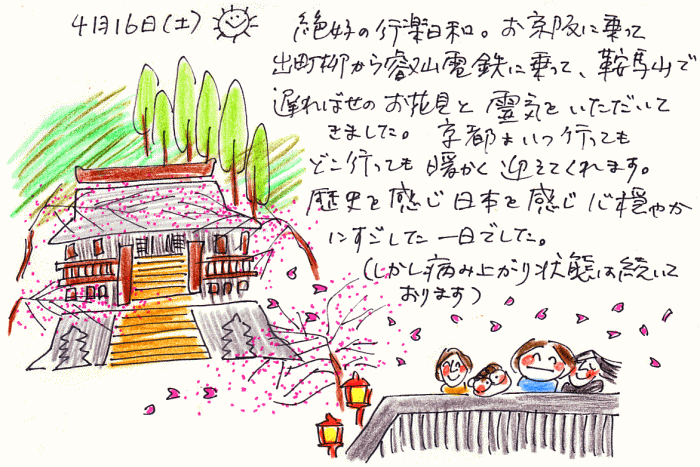 4月16日(土)
絶好の行楽日和。お京阪に乗って
出町柳から叡山電鉄に乗って、鞍馬山で
遅ればせのお花見と霊気をいただいて
きました。京都はいつ行っても
どこ行っても暖かく迎えてくれます。
歴史を感じ日本を感じ心穏やか
にすごした一日でした。
(しかし病み上がり状態は続いて
おります)